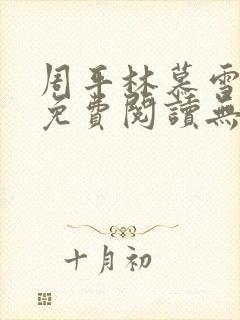 周平林慕雪
免費閱讀無
十月初